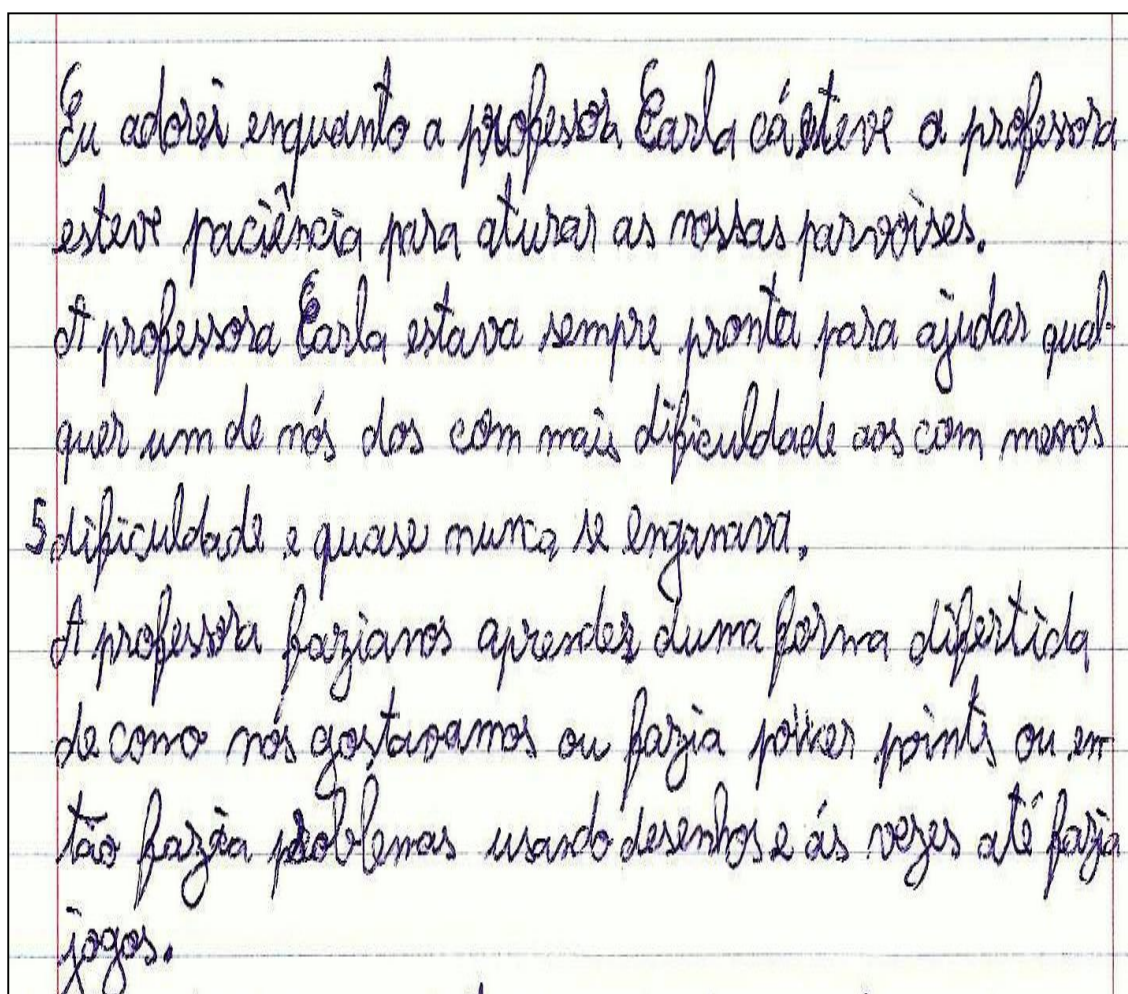 Eu adorei enquanto a professora Carla cá steve a professora
esteve paciência para aturar as nossas parvoises.
A professora Carla estava sempre pronta para ajudar qual-
quer um de nós dos com mais dificuldade aos com menos
5 dificuldade e quase nunca se enganava.
A professora fazianos aprender duma forma difertida
de como nós gostavamos ou fazia power points ou en-
tão fazia problemas usando desenhos e ás vezes até fazia
jogos.